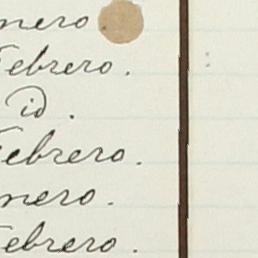 nero
Febrero.
id.
Febrero.
nero.
Febrero.